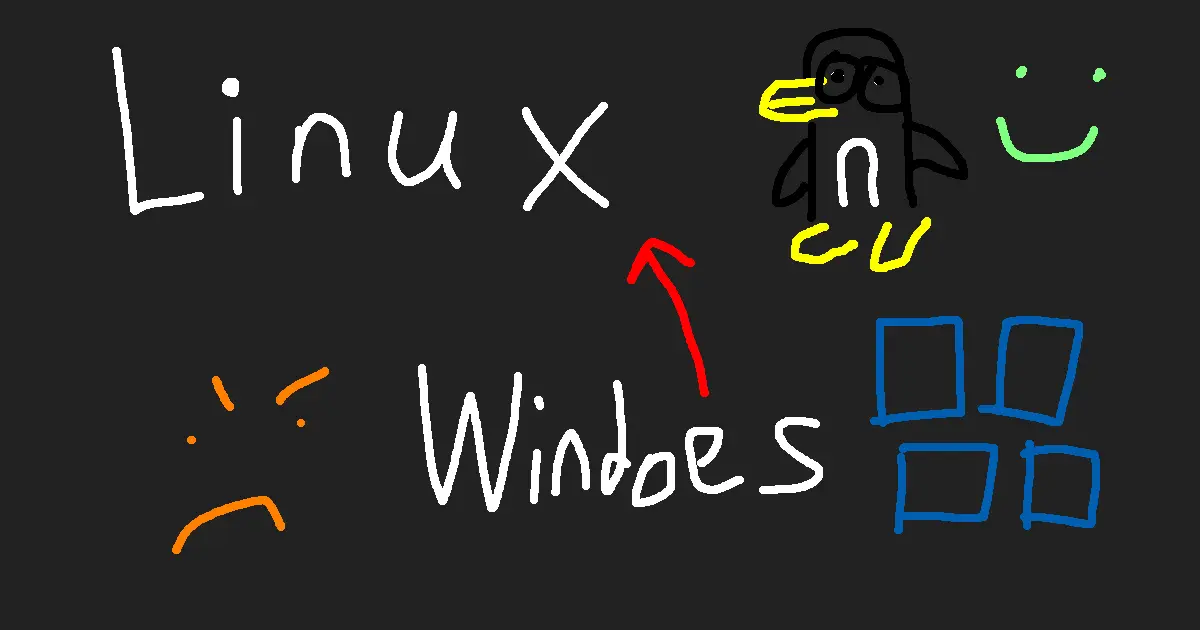 Linux
n
Windoes